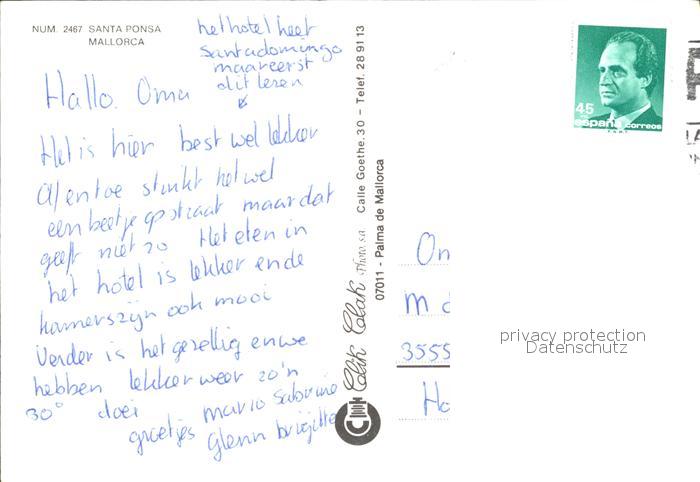 NUM. 2467 SANTA PONSA
MALLORCA
het hotel heet
santadomingo
maar eerst
dit lezen
Hallo. Oma
Het is hier best wel lekker
Af en toe stinkt het wel
een beetje op straat maar dat
geeft niet zo Het eten in
het hotel is lekker en de
kamers zijn ook mooi
Verder is het gezellig en we
hebben lekker weer zo'n
30° doei
groetjes mario Sabrina
Glenn brigitte
Clik Clak Photo, s.a. Calle Goethe, 30 – Telef. 28 91 13
07011 - Palma de Mallorca
45
españa correos
Om
M
3555
Ho
privacy protection
Datenschutz